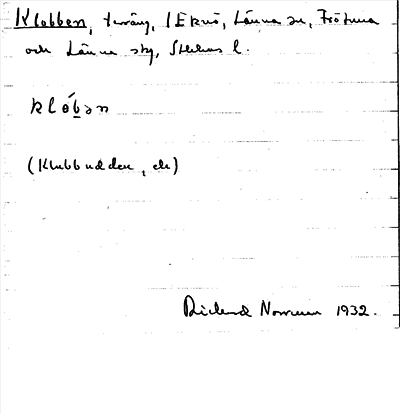 Klobben, terräng, I Eknö, Länna sn, Frötuna
och Länna skg, Sthlms l.
klób̲ən
(Klubbudden, ek)
Rickard Norrman 1932.